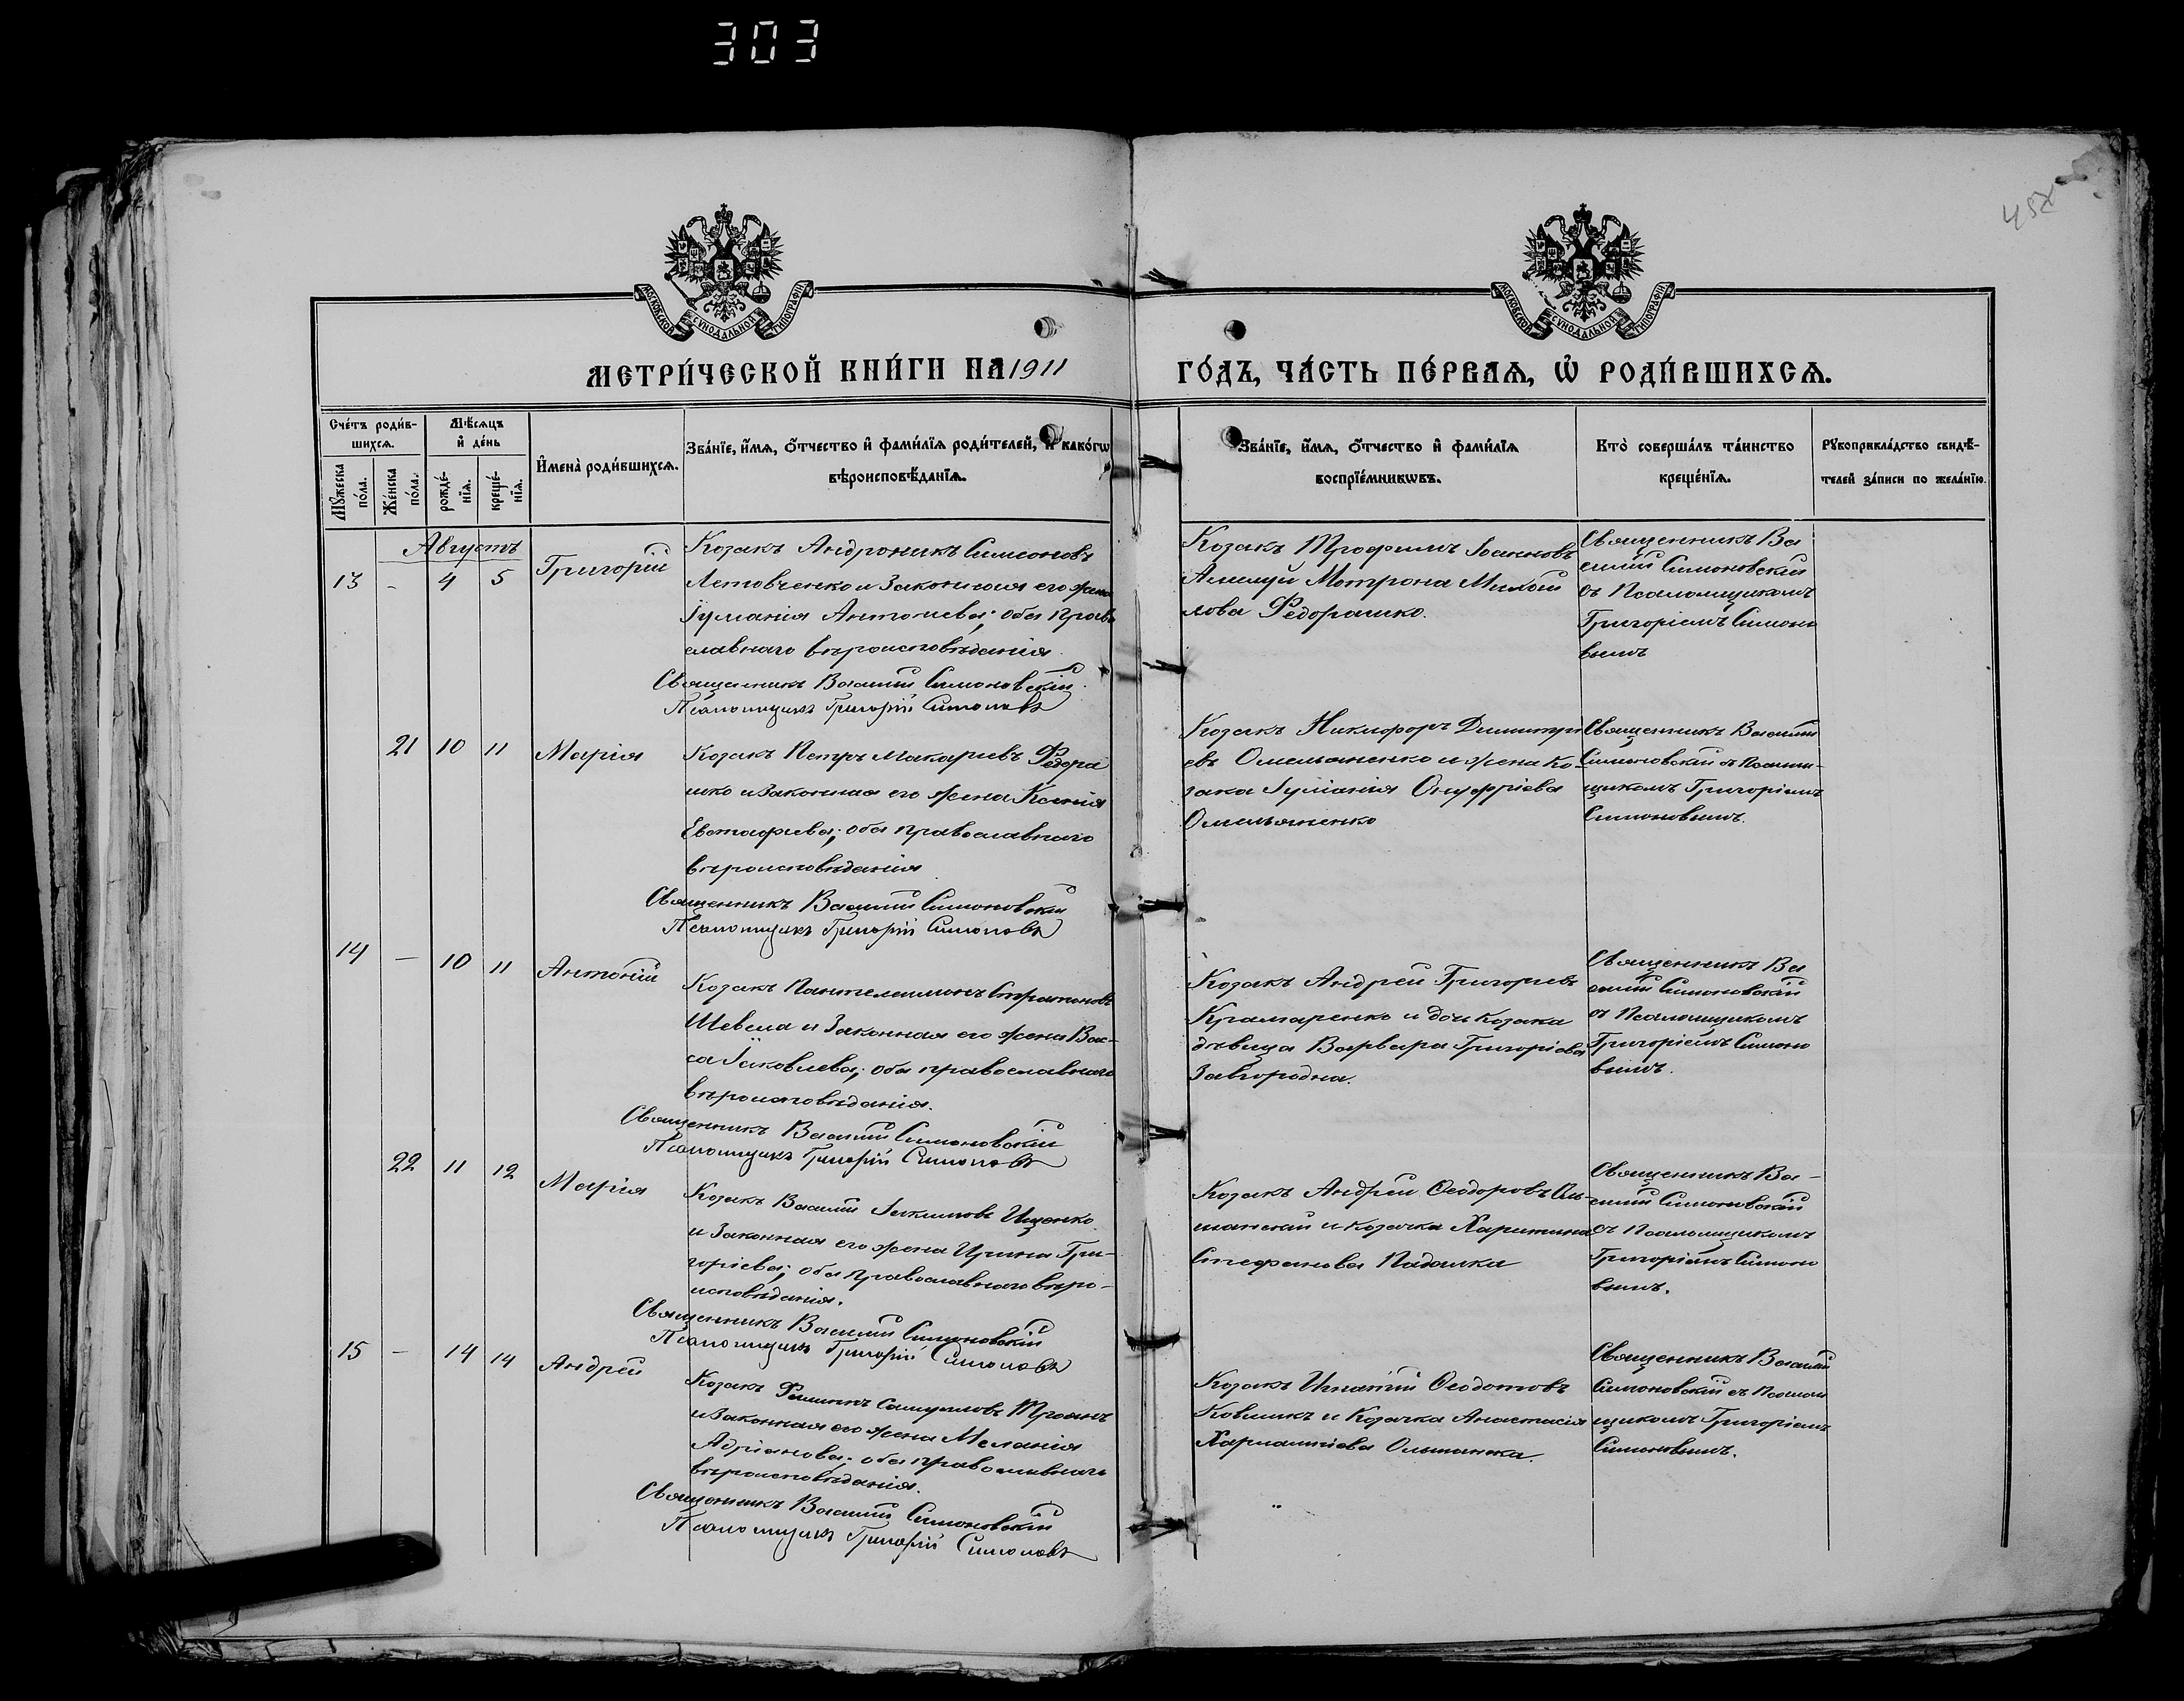 303
457
МОСКОВСКОЙ СѴНОДАЛЬНОЙ ТИПОГРАФІИ
МОСКОВСКОЙ СѴНОДАЛЬНОЙ ТИПОГРАФІИ
МЕТРИ́ЧЕСКОЙ КНИ́ГИ НА 1911
ГО́ДЪ, ЧА́СТЬ ПЕ́РВАѦ, Ѡ҆ РОДИ́ВШИХСѦ.
Сче́тъ роди́в-
шихсѧ.
Мꙋ́жеска по́ла.
Же́нска по́ла.
Мѣ́сѧцъ
и҆ де́нь
рожде́-
нїѧ.
креще́-
нїѧ.
И҆мена̀ роди́вшихсѧ.
Зва́нїе, и҆́мѧ, ѻ҆́тчество и҆ фами́лїѧ роди́телей, и҆ како́гѡ
вѣроисповѣ́данїѧ.
Зва́нїе, и҆́мѧ, ѻ҆́тчество и҆ фами́лїѧ
воспрїе́мникѡвъ.
Кто̀ соверша́лъ та́инство
креще́нїѧ.
Рꙋкоприкла́дство свидѣ́-
телей за́писи по жела́нїю.
Августъ
13 - 4 5 Григорій
Козакъ Андроникъ Симеоновъ
Летовченко и Законная его жена
Іуліанія Антониева; оба Право
славнаго вѣроисповѣданія.
Священникъ Василій Симоновскій.
Псаломщикъ Григорій Симоновъ
Козакъ Трофимъ Іоанновъ
Мотрона Михай
лова Федорашко.
Священникъ Ва
силій Симоновскій
съ Псаломщикомъ
Григоріемъ Симоно
вымъ
21 10 11 Марія
Козакъ Петръ Макариевъ Федора
шко и Законная его жена Ксенія
Евстафиева; оба православнаго
вѣроисповѣданія
Священникъ Василій Симоновскій
Псаломщикъ Григорій Симоновъ
Козакъ Никифоръ Димитри
евъ Омельяненко и жена ко-
зака Іуліанія Онуфріева
Омельяненко
Священникъ Василій
Симоновскій съ Псалом-
щикомъ Григоріемъ
Симоновымъ.
14 — 10 11 Антоній
Козакъ Пантелеимонъ Стратоновъ
Шевела и Законная его жена Вас-
са Іаковлева; оба православнаго
вѣроисповѣданія.
Священникъ Василій Симоновскій
Псаломщикъ Григорій Симоновъ
Козакъ Андрей Григорьевъ
Крамаренко и дочь козака
дѣвица Варвара Григоріева
Завгородна.
Священникъ Ва
силій Симоновскій
съ Псаломщикомъ
Григоріемъ Симоно
вымъ.
22 11 12 Марія
Козакъ Василій Іакимовъ Ищенко
и Законная его жена Ирина Гри-
горіева; оба православнаго вѣро-
исповѣданія.
Священникъ Василій Симоновскій
Псаломщикъ Григорій Симоновъ
Козакъ Андрей Феодоровъ Оль-
шанскій и козачка Харитина
Стефанова Падалка
Священникъ Ва-
силій Симоновскій
съ Псаломщикомъ
Григоріемъ Симоно
вымъ.
15 — 14 14 Андрей
Козакъ Филиппъ Самуиловъ Троянъ
и Законная его жена Меланія
Адріанова; оба православнаго
вѣроисповѣданія.
Священникъ Василій Симоновскій
Псаломщикъ Григорій Симоновъ
Козакъ Игнатій Феодотовъ
Ковшикъ и Козачка Анастасія
Харлампіева Ольшанска.
Священникъ Василій
Симоновскій съ Псалом
щикомъ Григоріемъ
Симоновымъ.